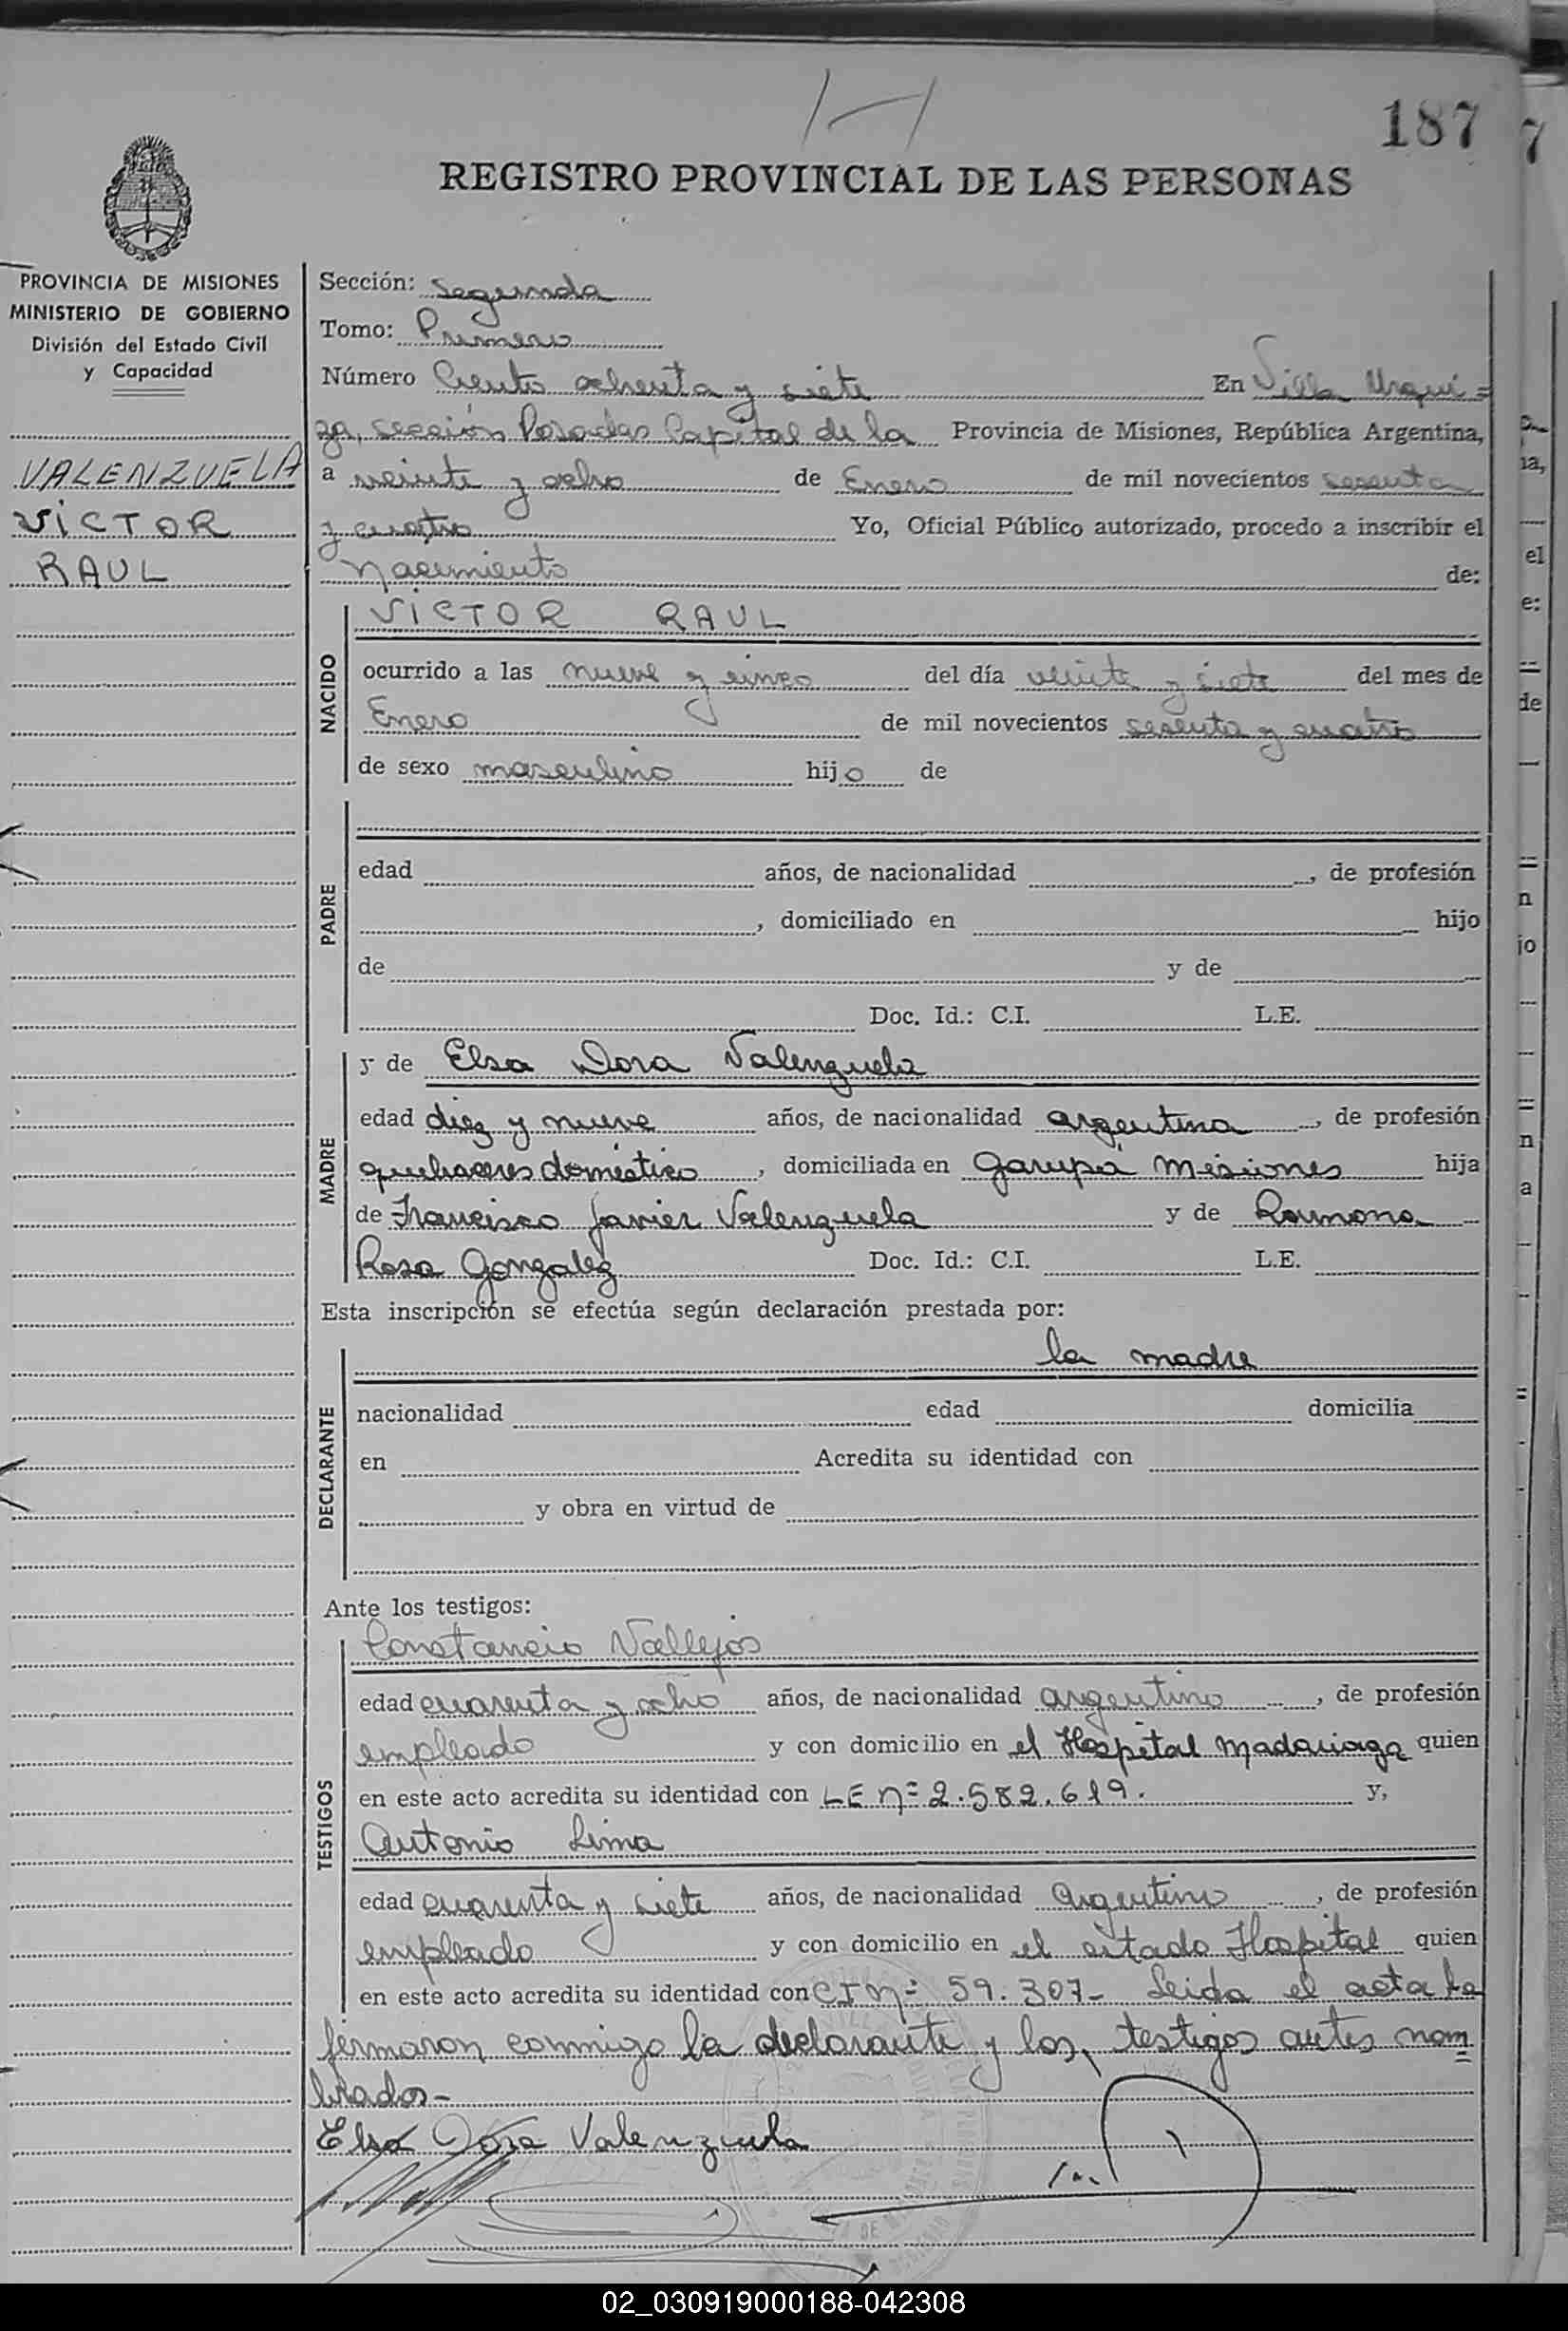 187
REGISTRO PROVINCIAL DE LAS PERSONAS
PROVINCIA DE MISIONES
MINISTERIO DE GOBIERNO
División del Estado Civil
y Capacidad
VALENZUELA
VICTOR
RAUL
Sección: Segunda
Tomo: Primero
Número Ciento ochenta y siete En Villa Urqui=
za, sección Posadas Capital de la Provincia de Misiones, República Argentina,
a veinte y ocho de Enero de mil novecientos sesenta
y cuatro Yo, Oficial Público autorizado, procedo a inscribir el
Nacimiento de:
NACIDO
VICTOR RAUL
ocurrido a las nueve y cinco del día veinte y siete del mes de
Enero de mil novecientos sesenta y cuatro
de sexo masculino hijo de
PADRE
edad años, de nacionalidad , de profesión
, domiciliado en hijo
de y de
Doc. Id.: C.I. L.E.
MADRE
y de Elsa Dora Valenzuela
edad diez y nueve años, de nacionalidad argentina, de profesión
quehaceres doméstico, domiciliada en Garupá Misiones hija
de Francisco Javier Valenzuela y de Ramona
Rosa Gonzalez Doc. Id.: C.I. L.E.
Esta inscripción se efectúa según declaración prestada por:
DECLARANTE
la madre
nacionalidad edad domicilia
en Acredita su identidad con
y obra en virtud de
Ante los testigos:
TESTIGOS
Constancio Vallejos
edad cuarenta y ocho años, de nacionalidad argentino, de profesión
empleado y con domicilio en el Hospital Madariaga quien
en este acto acredita su identidad con LE nº 2.582.619. y,
Antonio Lima
edad cuarenta y siete años, de nacionalidad argentino, de profesión
empleado y con domicilio en el citado Hospital quien
en este acto acredita su identidad con CI Nº 59.307- Leida el acta la
firmaron conmigo la declarante y los testigos antes nom=
brados-
Elsa Dora Valenzuela
02_030919000188-042308